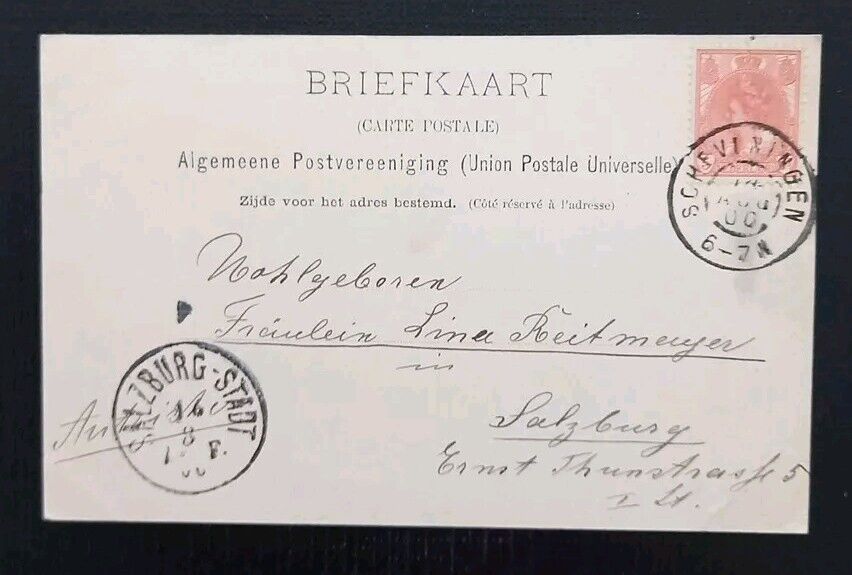 BRIEFKAART
(CARTE POSTALE)
Algemeene Postvereeniging (Union Postale Universelle)
Zijde voor het adres bestemd. (Côté réservé à l'adresse)
SCHEVENINGEN
14
AUG
00
6-7N
Wohlgeboren
Fräulein Lina Reitmeyer
in
Salzburg
Ernst Thunstrasse 5
I St.
SALZBURG-STADT
16
8
F.
00